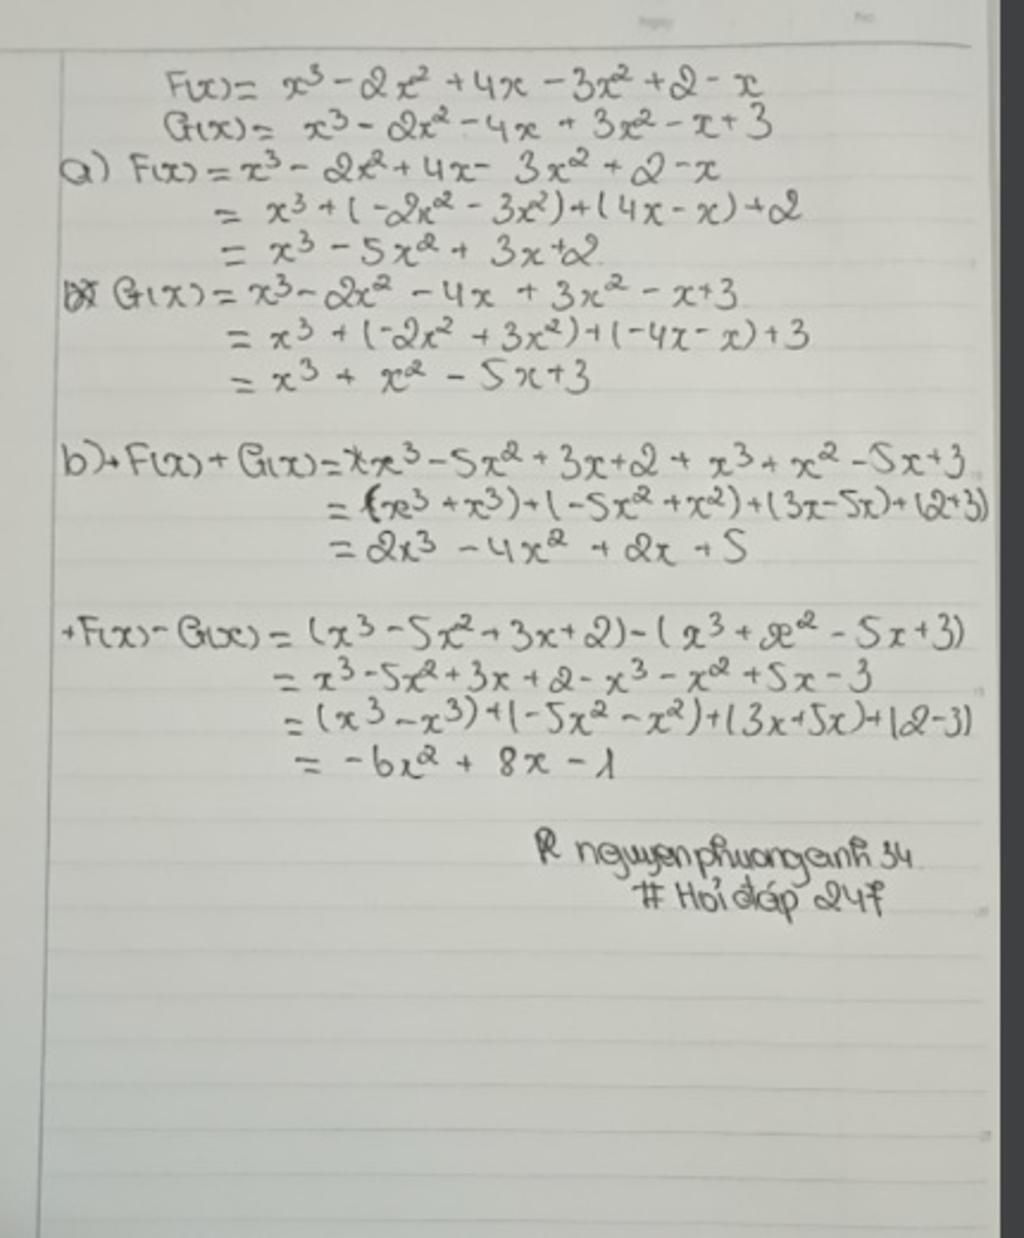 F(x) = x³ - 2x² + 4x - 3x² + 2 - x
G(x) = x³ - 2x² - 4x + 3x² - x + 3
a) F(x) = x³ - 2x² + 4x - 3x² + 2 - x
= x³ + (-2x² - 3x²) + (4x - x) + 2
= x³ - 5x² + 3x + 2
G(x) = x³ - 2x² - 4x + 3x² - x + 3
= x³ + (-2x² + 3x²) + (-4x - x) + 3
= x³ + x² - 5x + 3
b) + F(x) + G(x) = x³ - 5x² + 3x + 2 + x³ + x² - 5x + 3
= (x³ + x³) + (-5x² + x²) + (3x - 5x) + (2+3)
= 2x³ - 4x² + 2x + 5
+ F(x) - G(x) = (x³ - 5x² + 3x + 2) - (x³ + x² - 5x + 3)
= x³ - 5x² + 3x + 2 - x³ - x² + 5x - 3
= (x³ - x³) + (-5x² - x²) + (3x + 5x) + (2-3)
= -6x² + 8x - 1
nguyenphuonganh 34
# Hỏi đáp 247